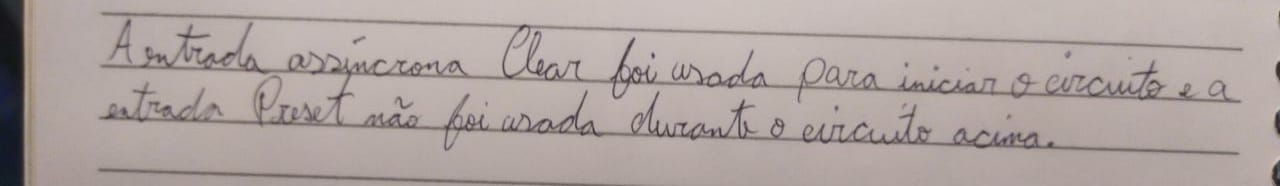 A entrada assíncrona Clear foi usada para iniciar o circuito e a
entrada Preset não foi usada durante o circuito acima.